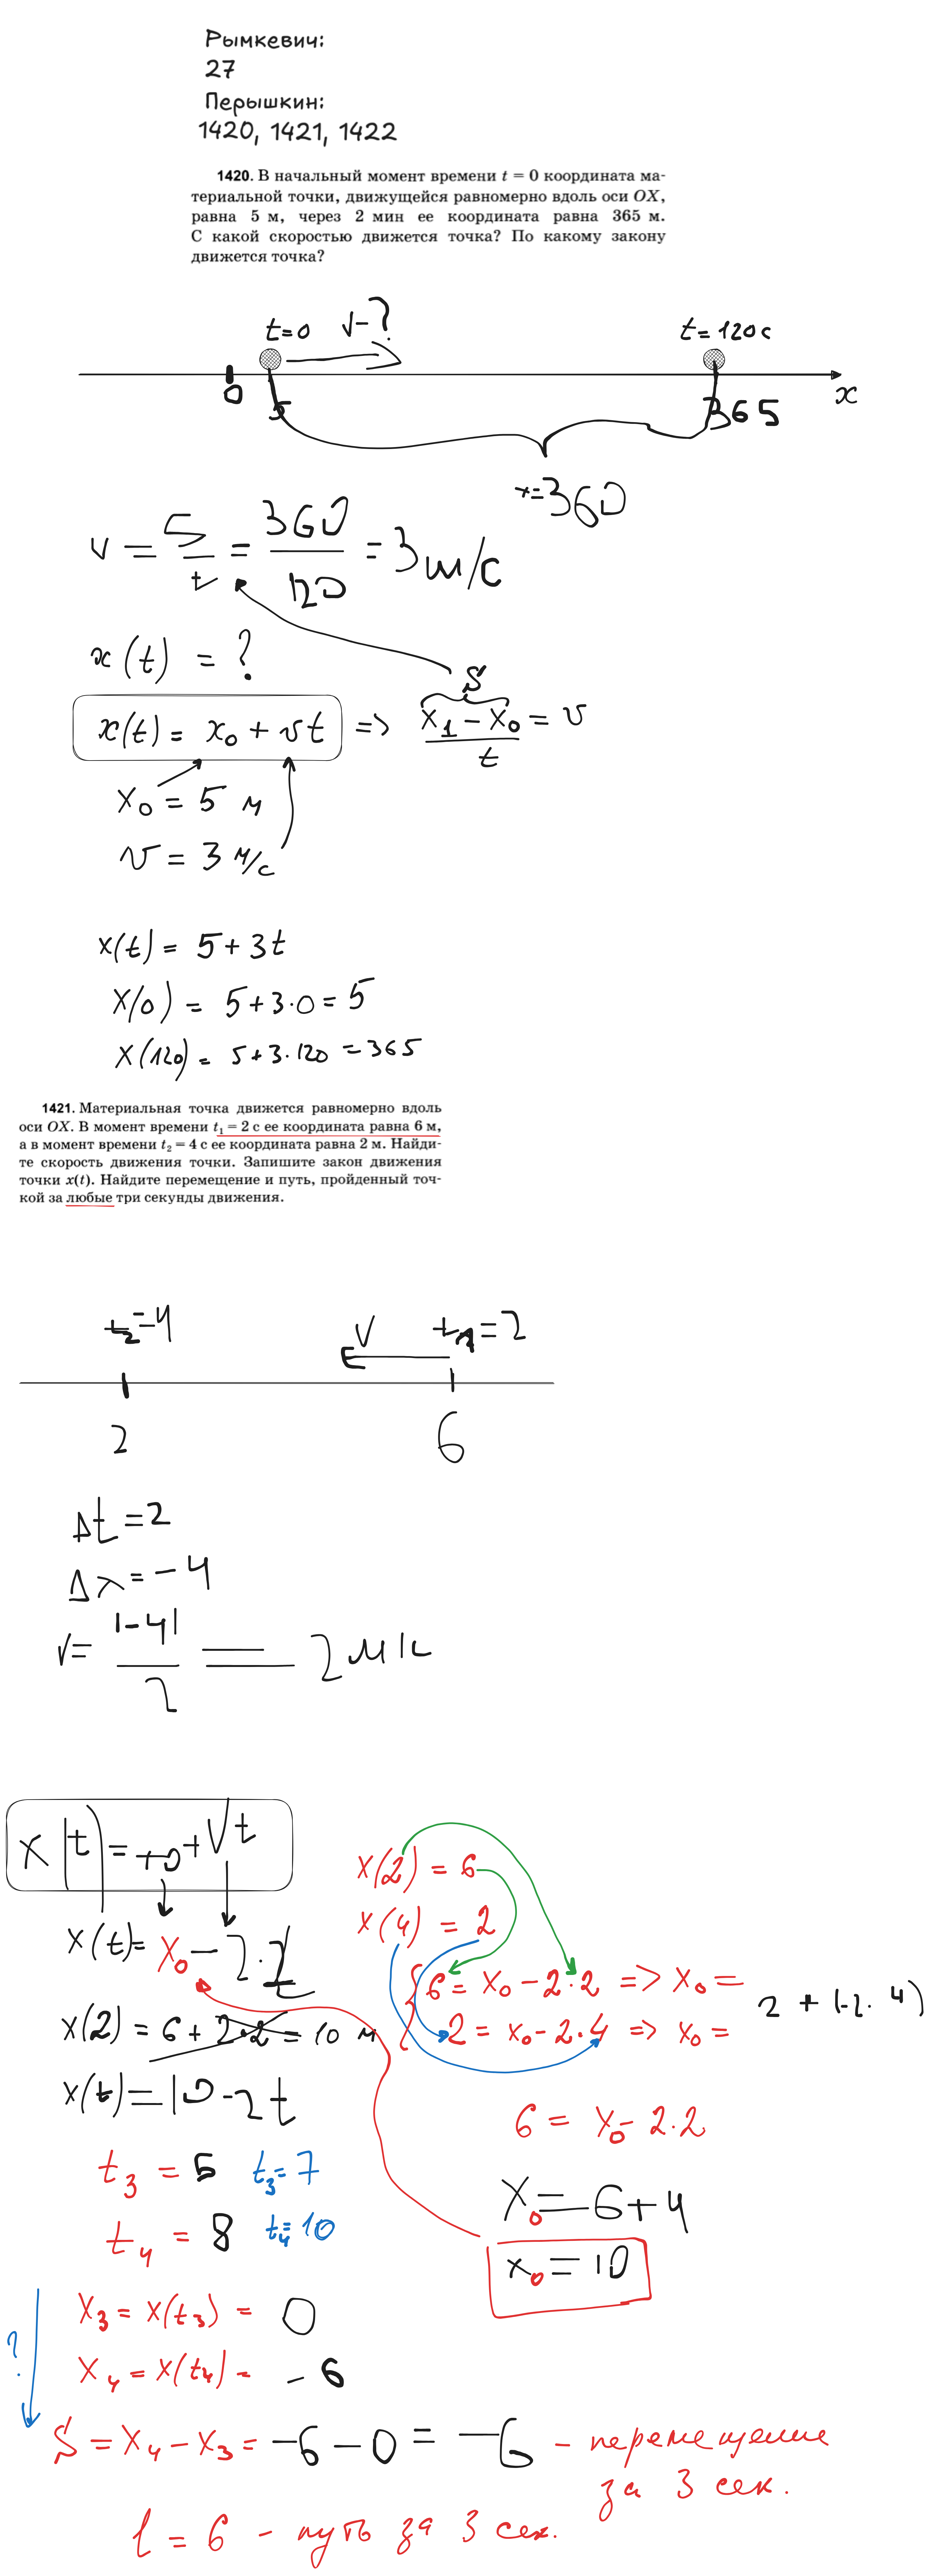 Рымкевич:
27
Перышкин:
1420, 1421, 1422
1420. В начальный момент времени t = 0 координата ма-
териальной точки, движущейся равномерно вдоль оси OX,
равна 5 м, через 2 мин ее координата равна 365 м.
С какой скоростью движется точка? По какому закону
движется точка?
t=0
v-?
t=120с
0
5
365
x
+=360
v = S/t = 360/120 = 3 м/с
x(t) = ?
S
x(t) = x₀ + vt => (x₁ - x₀)/t = v
x₀ = 5 м
v = 3 м/с
x(t) = 5 + 3t
x(0) = 5+3·0 = 5
x(120) = 5+3·120 = 365
1421. Материальная точка движется равномерно вдоль
оси OX. В момент времени t₁ = 2 с ее координата равна 6 м,
а в момент времени t₂ = 4 с ее координата равна 2 м. Найди-
те скорость движения точки. Запишите закон движения
точки x(t). Найдите перемещение и путь, пройденный точ-
кой за любые три секунды движения.
t₂=4
V
t₁=2
2
6
Δt=2
Δx=-4
v= |-4|/2 = 2 м/с
x(t)=x0+Vt
x(2) = 6
x(4) = 2
x(t)= x₀ - 2·t
6 = x₀ - 2·2 => x₀ =
2 = x₀ - 2·4 => x₀ =
2 + (-2·4)
x(2) = 6 + 2·2 = 10 м
x(t)=10-2t
6 = x₀ - 2·2
x₀=6+4
x₀=10
t₃ = 5 t₃=7
t₄ = 8 t₄=10
x₃ = x(t₃) = 0
x₄ = x(t₄) = -6
?
S = x₄ - x₃ = -6-0 = -6 - перемещение
за 3 сек.
l = 6 - путь за 3 сек.